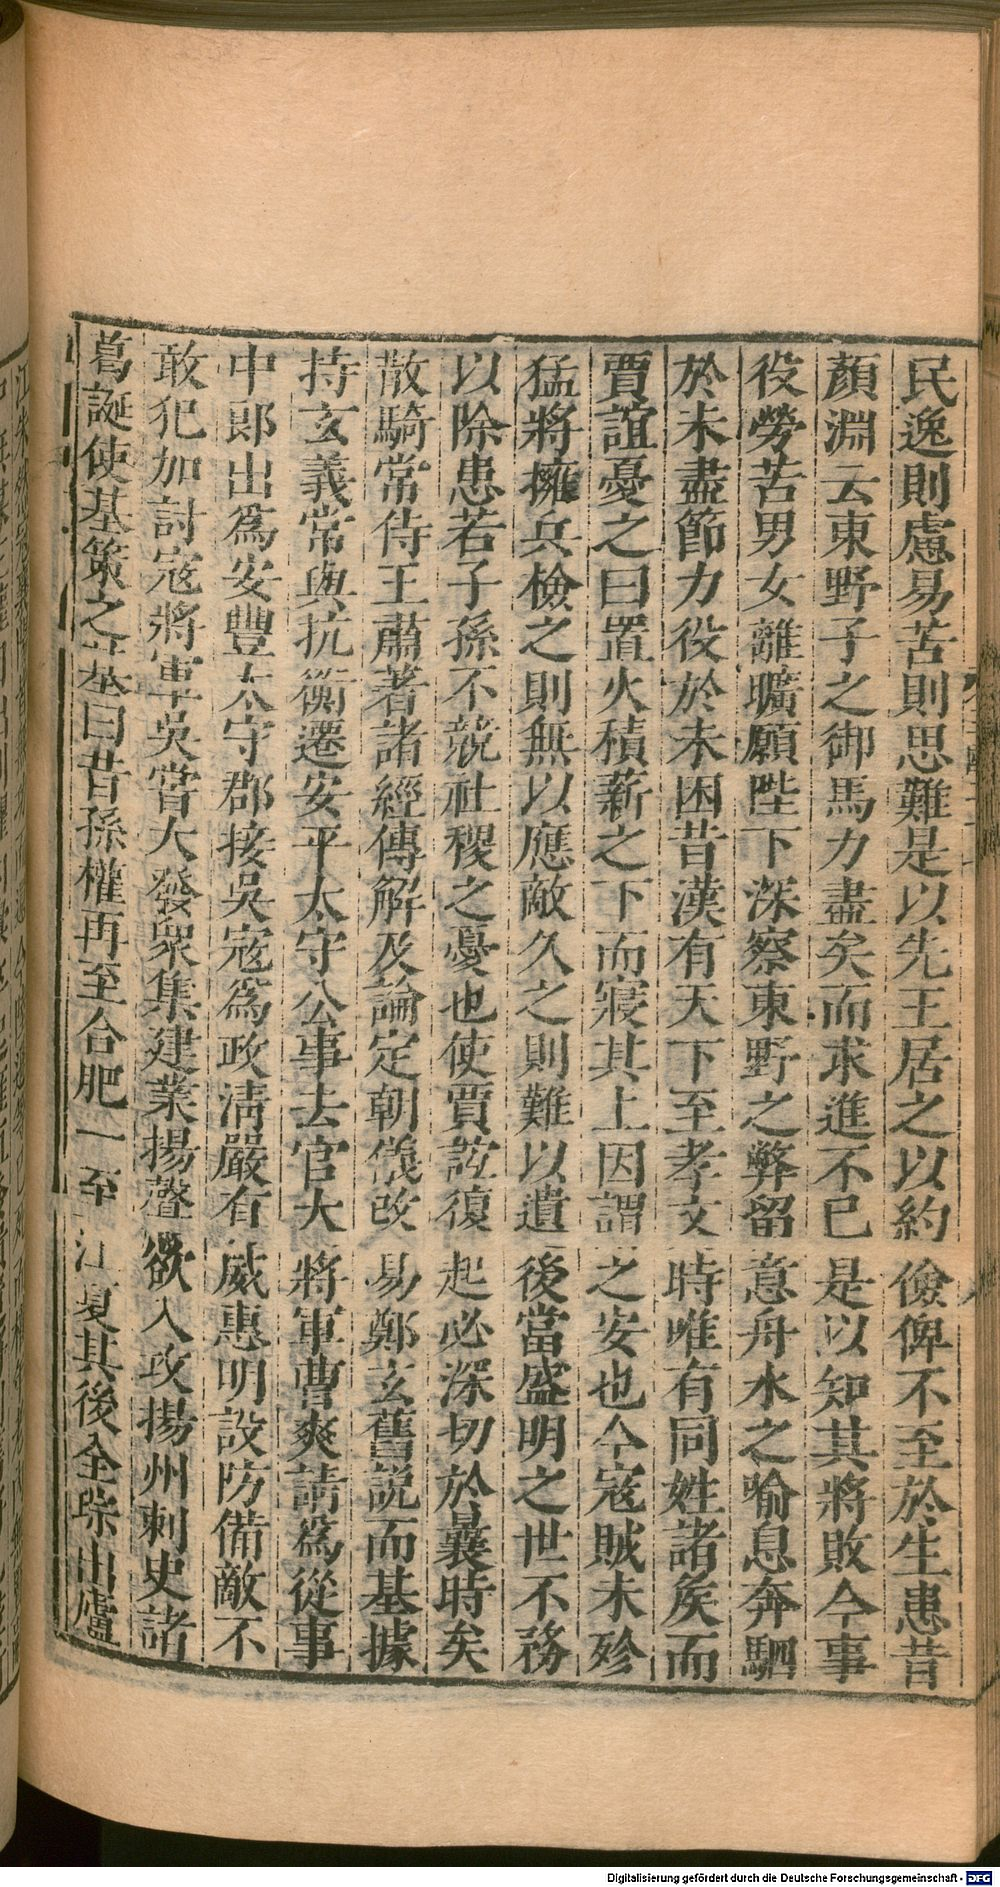 民逸則慮易苦則思難是以先王居之以約儉俾不至於生患昔
顏淵云東野子之御馬力盡矣而求進不已是以知其將敗今事
役勞苦男女離曠願陛下深察東野之弊留意舟水之喻息奔駟
於未盡節力役於未困昔漢有天下至孝文時唯有同姓諸矦而
賈誼憂之曰置火積薪之下而寢其上因謂之安也今寇賊未殄
猛將擁兵檢之則無以應敵久之則難以遺後當盛明之世不務
以除患若子孫不競社稷之憂也使賈誼復起必深切於曩時矣
散騎常侍王肅著諸經傳解及論定朝儀改易鄭玄舊説而基據
持玄義常與抗衡遷安平太守公事去官大將軍曹爽請爲從事
中郎出爲安豐太守郡接吳寇爲政清嚴有威惠明設防備敵不
敢犯加討寇將軍吳嘗大發衆集建業揚聲欲入攻揚州刺史諸
葛誕使基策之基曰昔孫權再至合肥一至江夏其後全琮出廬
Digitalisierung gefördert durch die Deutsche Forschungsgemeinschaft - DFG